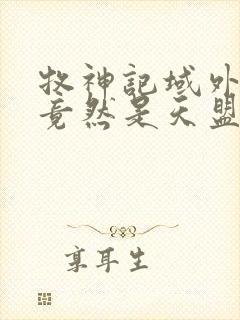 牧神記域外
竟然是天盟
享耳生